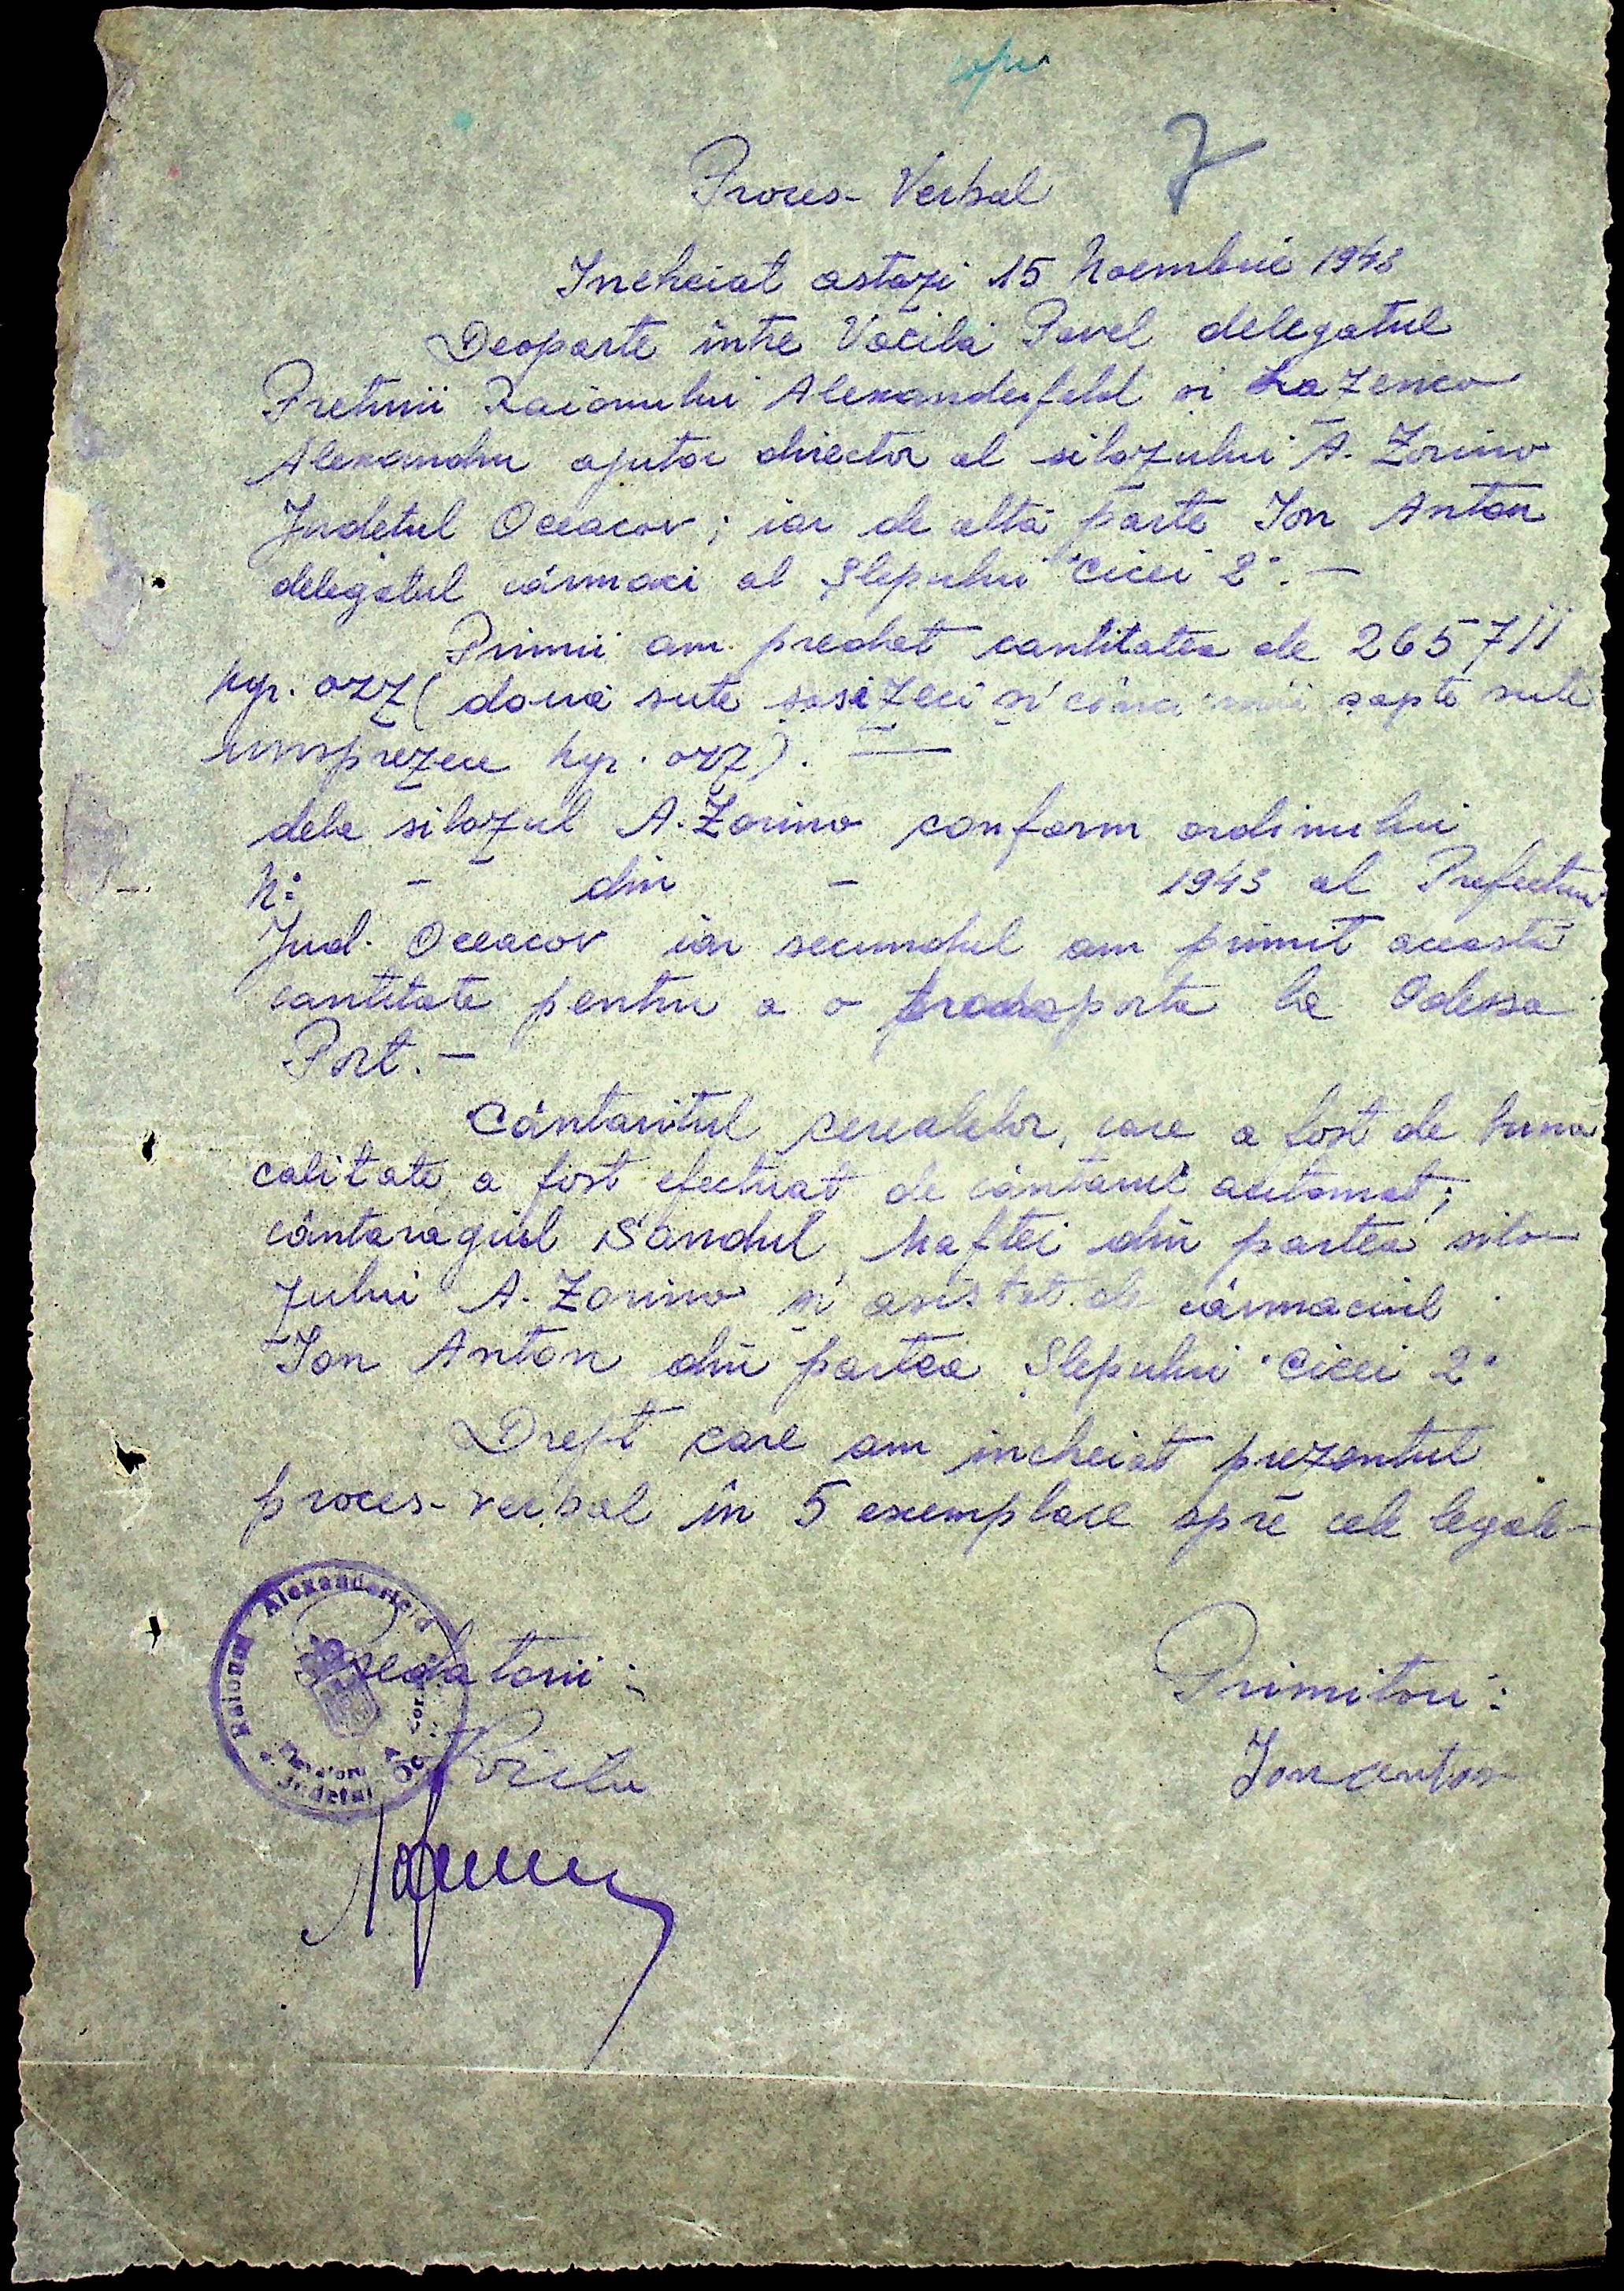 7
Proces-Verbal
Incheiat astazi 15 Noembrie 1943
Deoparte intre Vacilă Pavel delegatul
Preturii Raionului Alexanderfeld si Lazenco
Alexandru ajutor director al silozului A. Zorino
Judetul Oceacov; iar de altă parte Ion Anton
delegatul cârmaci al Șlepului "Cicei 2".-
Primii am predat cantitatea de 265711
kgr. orz (două sute sasizeci si cinci mii sapte sute
unsprezece kgr. orz). —
dela silozul A. Zorino conform ordinului
N: - din - 1943 al Prefecturi
Jud. Oceacov iar secundul am primit această
cantitate pentru a o transporta la Odessa
Port.-
Cântaritul cerealelor, care a fost de bună
calitate, a fost efectuat de cântarul automat;
cântaragiul Sandul Naftei din partea silo-
zului A. Zorino si asistat de cârmaciul
Ion Anton din partea Șlepului "Cicei 2"
Drept care am incheiat prezentul
proces-verbal în 5 exemplare spre cele legale-
Raionul Alexanderfeld
Judetul
Predatorii:
Primitori:
Ion Anton